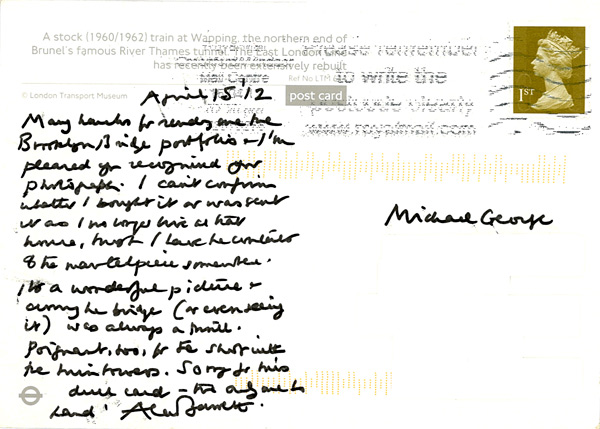 A stock (1960/1962) train at Wapping, the northern end of
Brunel's famous River Thames tunnel. The East London Line
has recently been extensively rebuilt
Mail Centre
Ref No LTM
© London Transport Museum
post card
to write the
postcode clearly
www.royalmail.com
1ST
April 15 '12
Many thanks for sending me the
Brooklyn Bridge portfolio – I'm
pleased you recognised your
photograph. I can't confirm
whether I bought it or was sent
it as I no longer live at that
house, though I have the contents
of the mantelpiece somewhere.
It's a wonderful picture &
crossing the bridge (or even seeing
it) was always a thrill.
Poignant, too, for the shot with
the twin towers. Sorry for this
dull card – the only one to
hand! Alan Bennett.
Michael George